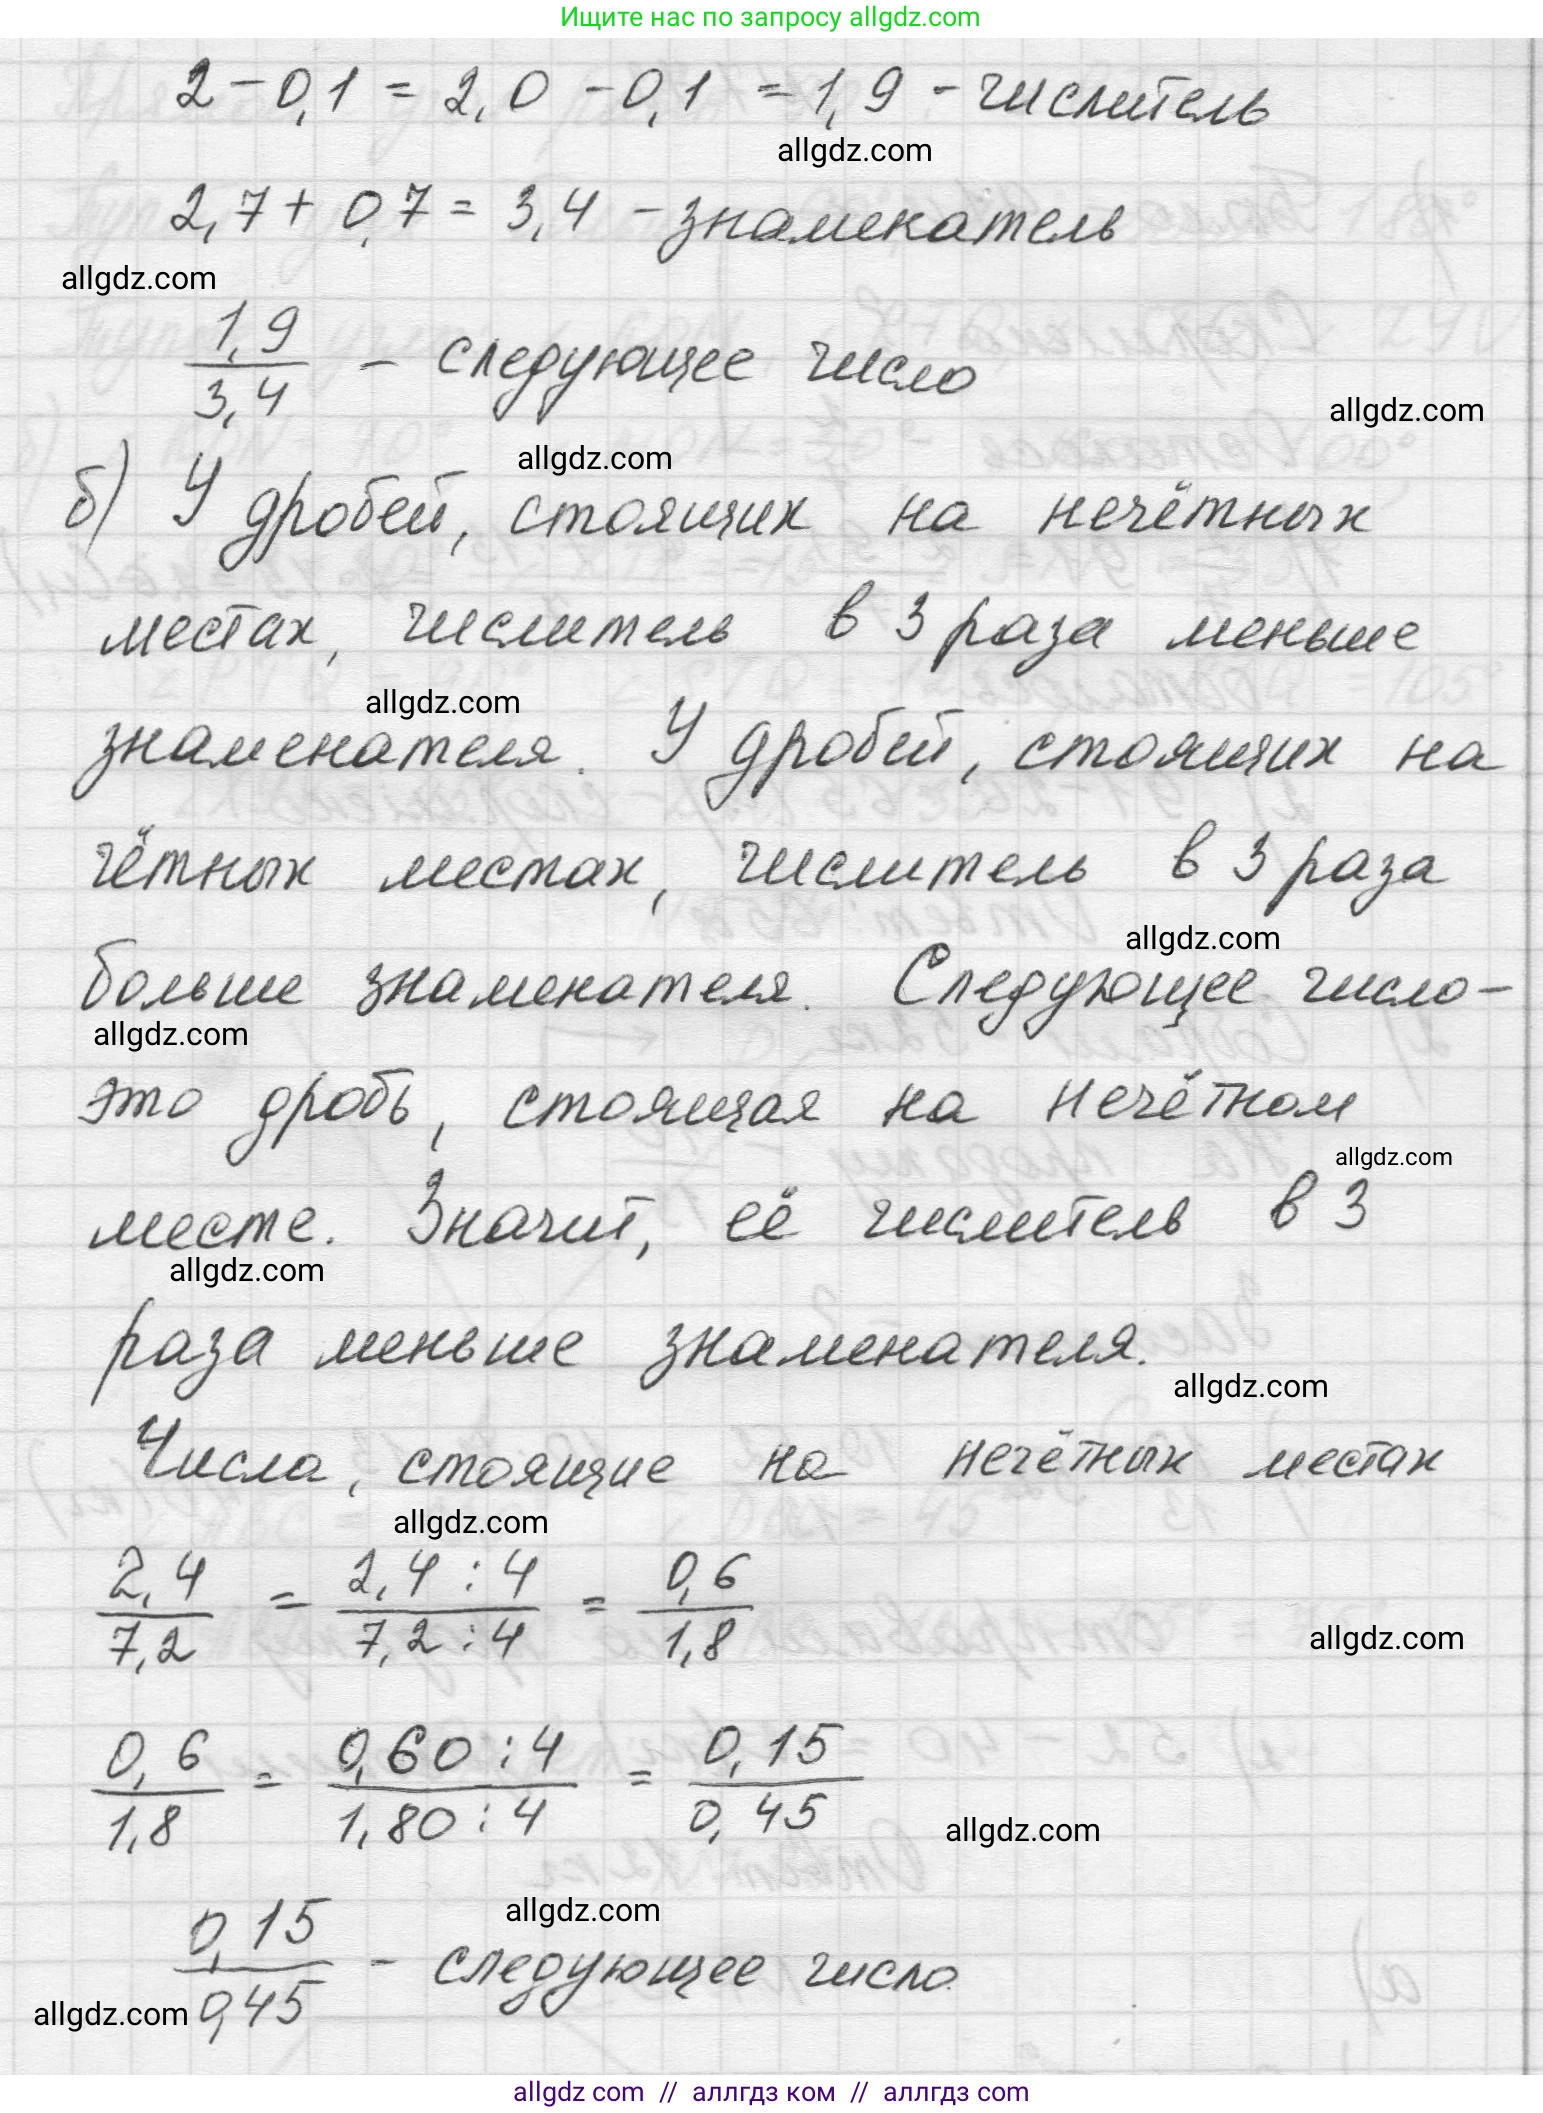 Ищите нас по запросу allgdz.com
2 - 0,1 = 2,0 - 0,1 = 1,9 - числитель
allgdz.com
2,7 + 0,7 = 3,4 - знаменатель
allgdz.com
1,9/3,4 - следующее число
allgdz.com
allgdz.com
б) У дробей, стоящих на нечётных
местах, числитель в 3 раза меньше
allgdz.com
знаменателя. У дробей, стоящих на
чётных местах, числитель в 3 раза
allgdz.com
больше знаменателя. Следующее число-
allgdz.com
это дробь, стоящая на нечётном
allgdz.com
месте. Значит, её числитель в 3
allgdz.com
раза меньше знаменателя.
allgdz.com
Числа, стоящие на нечётных местах
allgdz.com
2,4/7,2 = 2,4:4/7,2:4 = 0,6/1,8
allgdz.com
0,6/1,8 = 0,60:4/1,80:4 = 0,15/0,45
allgdz.com
allgdz.com
0,15/0,45 - следующее число.
allgdz.com
allgdz com // аллгдз ком // аллгдз com